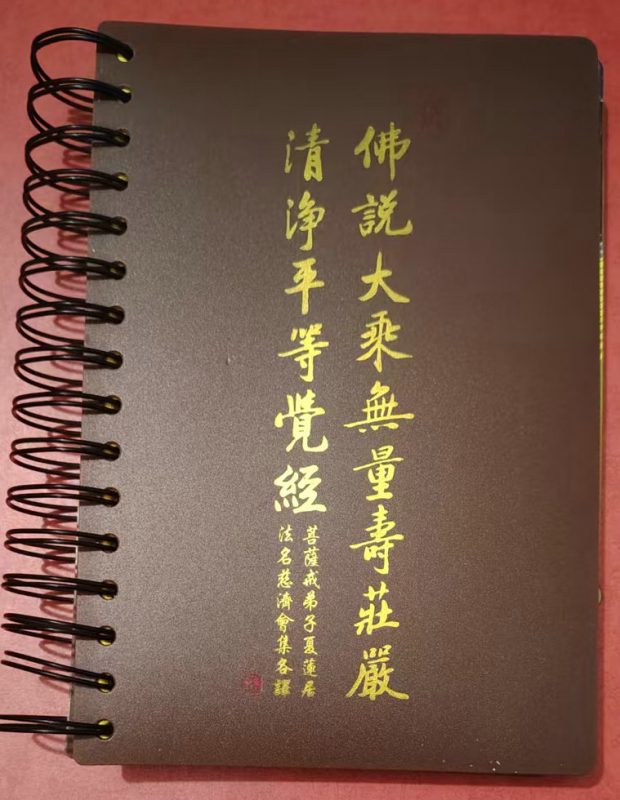 佛説大乘無量壽莊嚴
清淨平等覺經
菩薩戒弟子夏蓮居
法名慈濟會集各譯